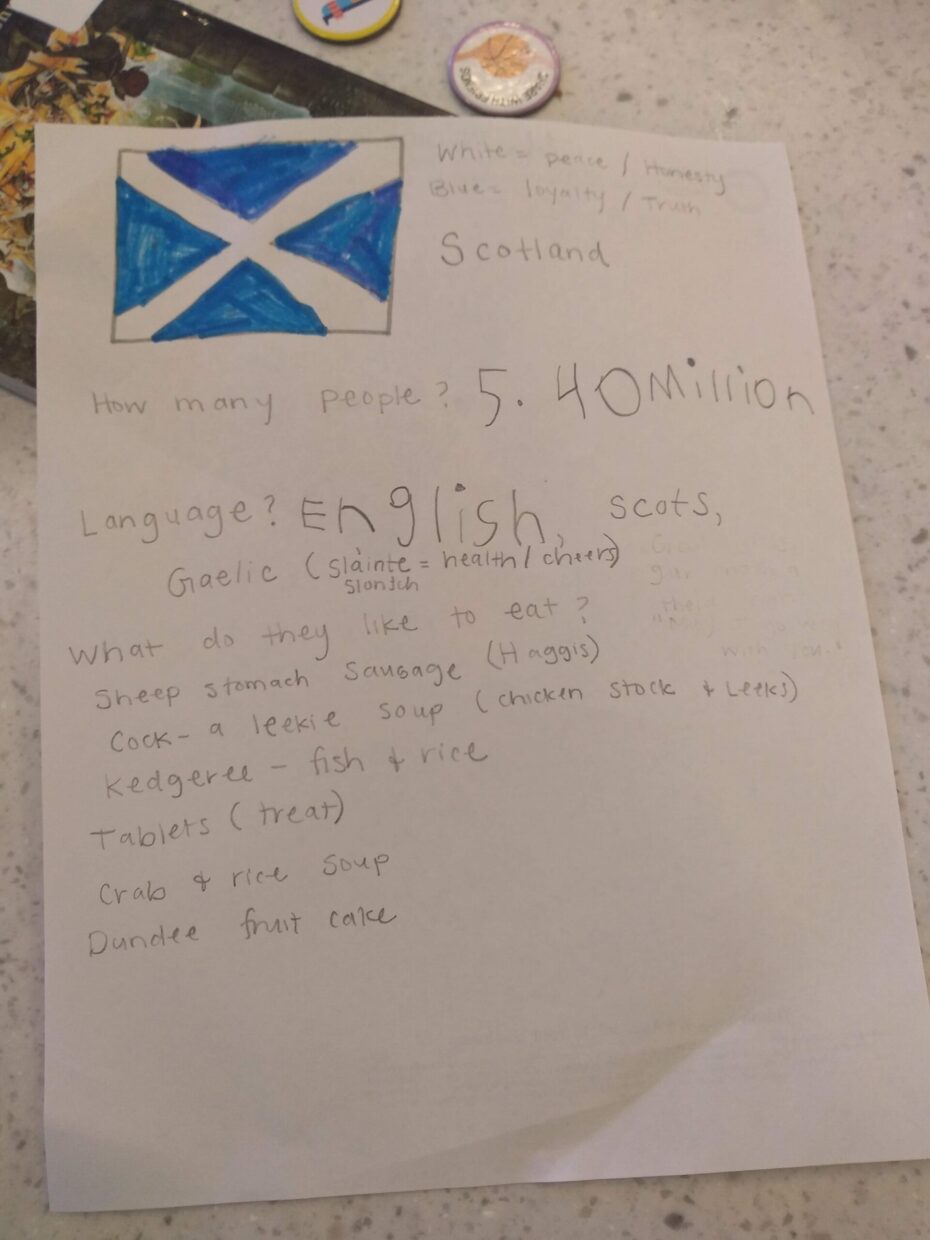 SHARE WITH FRIENDS
White = peace / Honesty
Blue = loyalty / Truth
Scotland
How many people? 5.40 Million
Language? English, Scots,
Gaelic (Slàinte = health / cheers)
Slontch
What do they like to eat?
with you"
Sheep stomach Sausage (Haggis)
Cock-a leekie soup (chicken stock & Leeks)
Kedgeree - fish & rice
Tablets (treat)
Crab & rice soup
Dundee fruit cake